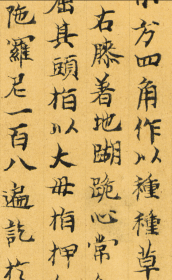 方四角作以種種草
右膝着地𨂿跪心常
屈其頭栢以大母栢押
陁羅尼一百八遍訖於